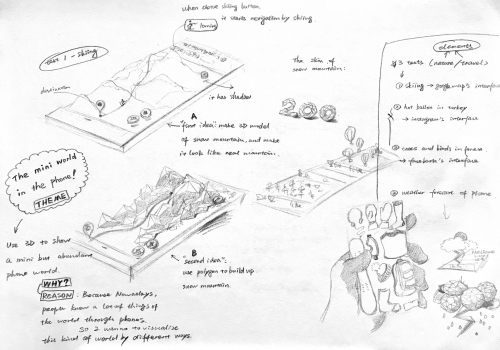 when above skiing button
it starts navigation by skiing
test 1 - skiing
destination
it has shadow
The skin of
snow mountain:
A
"first idea": make 3D model
of snow mountain, and make
it look like real mountain.
The mini world
in the phone!
THEME
Use 3D to show
a mini but abundant
phone world.
WHY?
REASON: Because Nowadays,
people know a lot of things of
the world through phones.
So I wanna to visualise
this kind of world by different ways.
B
"second idea":
use polygon to build up
snow mountain
elements
3 tests (nature/travel)
① skiing → google map's interface
② hot ballon in turkey
→ instagram's interface
③ trees and birds in forest
→ facebook's interface
④ weather forecast of phone